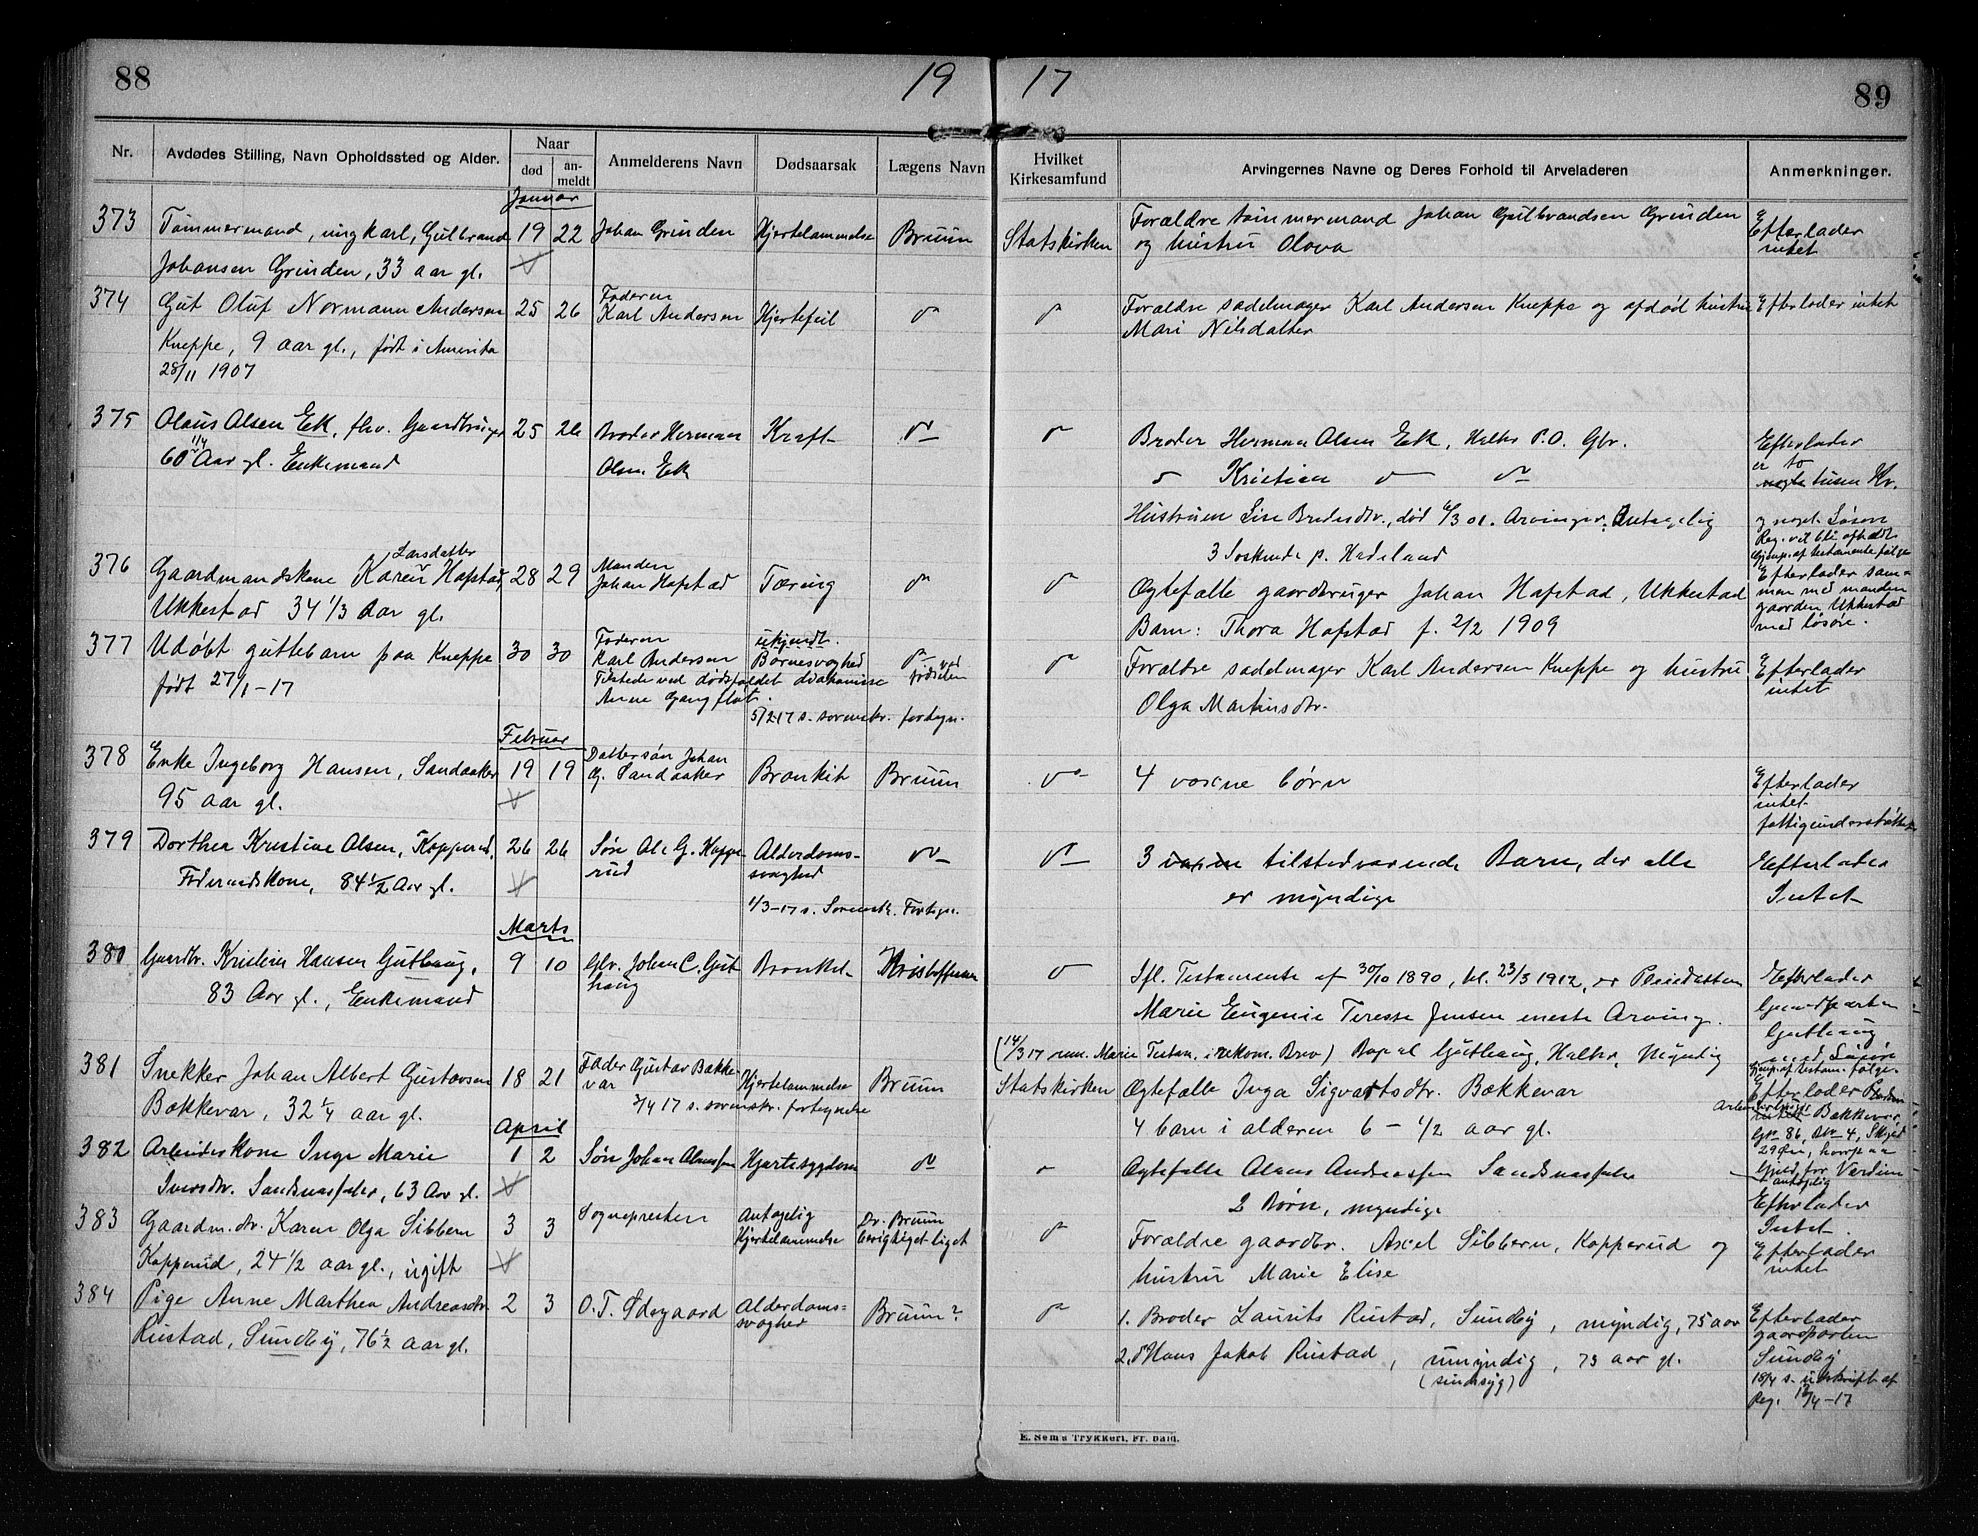 88
19 17
89
Nr. Avdødes Stilling, Navn Opholdssted og Alder. Naar død an-meldt Anmelderens Navn Dødsaarsak Lægens Navn Hvilket Kirkesamfund Arvingernes Navne og Deres Forhold til Arveladeren Anmerkninger.
Januar
373 Tømmermand, ungkarl, Gulbrand 19 22 Johan Grinden Hjertelammelse Bruun Statskirken Forældre tømmermand Johan Gulbrandsen Grinden Efterlader
Johansen Grinden, 33 aar gl. og hustru Olava intet
374 Gut Oluf Normann Andersen 25 26 Faderen Karl Andersen Hjertefeil Forældre sadelmager Karl Andersen Kneppe og afdød hustru Efterlader intet
Kneppe, 9 aar gl., født i Amerika Mari Nilsdatter
28/11 1907
375 Olaus Olsen Ek, fhv. Gaardbruger 25 26 Broder Herman Kræft Broder Herman Olsen Ek, Halbs P.O. Gbr. Efterlader
60 1/4 Aar gl. Enkemand Olsen Ek Kristian er to
tusen Kr.
Hustruen Lise Bredesdtr., død 6/3 01. Arvinger: Antagelig og noget Løsøre
3 Søskende p. Hadeland Reg. vil bli afholdt
376 Gaardmandskone Karen Larsdatter Hafstad, 28 29 Manden Johan Hafstad Tæring Ægtefælle gaardbruger Johan Hafstad, Ukkestad Efterlader sam-
Ukkestad 34 1/3 Aar gl. men med manden
Barn: Thora Hafstad f. 2/2 1909 gaarden Ukkestad
med løsøre.
377 Udøbt guttebarn paa Kneppe 30 30 Faderen Karl Andersen ukjendt. Barnesvaghed ved fødselen Forældre sadelmager Karl Andersen Kneppe og hustru Efterlader
født 27/1-17 Tilstede ved dødsfaldet diakonisse Olga Martinsdtr. intet
Anne Gangfløt.
5/2 17 s. sorenskr. fortegn.
Februar
378 Enke Ingeborg Hansen, Sandaaker 19 19 Dattersøn Johan G. Sandaaker Bronkit Bruun 4 voxne børn Efterlader
95 aar gl. intet
fattigunderstøttet
379 Dorthea Kristine Olsen, Kopperud, 26 26 Søn Ole G. Kopperud Alderdoms-svaghed 3 tilstedværende Barn, der alle Efterlader
Føderaadskone, 84 1/2 Aar gl. er myndige Intet
1/3-17 s. Sorenskr. Fortegn.
Marts
380 Gaardbr. Kristian Hansen Guthaug, 9 10 Gbr. Johan C. Guthaug Bronkit Kristoffersen Ifl. Testamente af 30/10 1890, tl. 23/3 1912, er Pleiedatteren Efterlader
83 Aar gl., Enkemand Marie Eugenie Terese Jensen eneste Arving. Gaardparten
Guthaug
med Løsøre
(14/3 17 Marie Testam. i rekom. Brev) Guthaug, Myndig
381 Snekker Johan Albert Gustavsen 18 21 Fader Gustav Bækkevar Hjertelammelse Bruun Statskirken Ægtefælle Inga Sigvartsdtr. Bækkevar Efterlader
Bækkevar, 32 1/4 aar gl. 2/4 17 s. sorenskr. fortegnelse 4 barn i alderen 6 – 1/2 aar gl. Bækkevar,
Gnr 86, Bnr 4, Skyld
April
382 Arbeiderkone Inge Marie 1 2 Søn Johan Olausen Hjertesygdom Ægtefælle Olaus Andreassen Sandnæsfaler
Iversdtr. Sandnæsfaler, 63 Aar gl. 2 Børn, myndige Efterlader
Intet
383 Gaardm. dtr. Karen Olga Sibbern 3 3 Sognepresten Antagelig Hjertelammelse Dr. Bruun besigtiget liget Forældre gaardbr. Axel Sibbern, Kopperud og Efterlader
Kopperud, 24 1/2 aar gl., ugift hustru Marie Elise intet
384 Pige Anne Marthea Andreasdtr. 2 3 O. T. Ødegaard Alderdoms-svaghed Bruun? 1. Broder Laurits Rustad, Sundby, myndig, 75 aar Efterlader
Rustad, Sundby, 76 1/2 aar gl. 2. Hans Jakob Rustad, umyndig, 73 aar gl. gaardparten
(sindssyg) Sundby
18/4 s. utskrift af
Reg. 13/4-17
E. Sem's Trykkeri, Fr. hald.